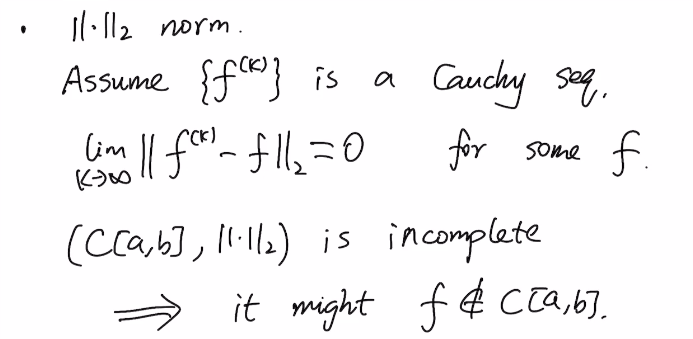 • ||·||₂ norm.
Assume {f^(K)} is a Cauchy seq.
lim_{K→∞} || f^(K) - f ||₂ = 0 for some f.
(C[a,b], ||·||₂) is incomplete
⟹ it might f ∉ C[a,b].